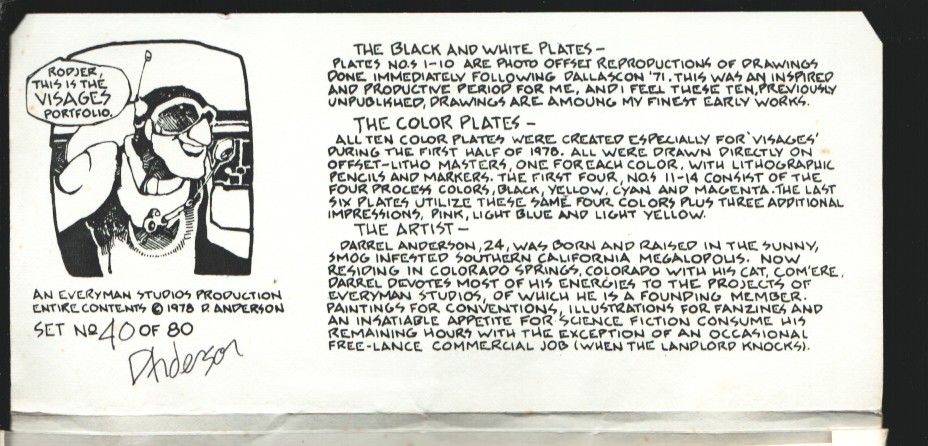 RODJER,
THIS IS THE
VISAGES
PORTFOLIO.
AN EVERYMAN STUDIOS PRODUCTION
ENTIRE CONTENTS © 1978 D. ANDERSON
SET Nº 40 OF 80
DAnderson
THE BLACK AND WHITE PLATES –
PLATES NO.S 1-10 ARE PHOTO OFFSET REPRODUCTIONS OF DRAWINGS
DONE IMMEDIATELY FOLLOWING DALLASCON '71. THIS WAS AN INSPIRED
AND PRODUCTIVE PERIOD FOR ME, AND I FEEL THESE TEN, PREVIOUSLY
UNPUBLISHED, DRAWINGS ARE AMOUNG MY FINEST EARLY WORKS.
THE COLOR PLATES –
ALL TEN COLOR PLATES WERE CREATED ESPECIALLY FOR 'VISAGES'
DURING THE FIRST HALF OF 1978. ALL WERE DRAWN DIRECTLY ON
OFFSET-LITHO MASTERS, ONE FOR EACH COLOR, WITH LITHOGRAPHIC
PENCILS AND MARKERS. THE FIRST FOUR, NO.S 11-14 CONSIST OF THE
FOUR PROCESS COLORS, BLACK, YELLOW, CYAN AND MAGENTA. THE LAST
SIX PLATES UTILIZE THESE SAME FOUR COLORS PLUS THREE ADDITIONAL
IMPRESSIONS, PINK, LIGHT BLUE AND LIGHT YELLOW.
THE ARTIST –
DARREL ANDERSON, 24, WAS BORN AND RAISED IN THE SUNNY,
SMOG INFESTED SOUTHERN CALIFORNIA MEGALOPOLIS. NOW
RESIDING IN COLORADO SPRINGS, COLORADO WITH HIS CAT, COM'ERE,
DARREL DEVOTES MOST OF HIS ENERGIES TO THE PROJECTS OF
EVERYMAN STUDIOS, OF WHICH HE IS A FOUNDING MEMBER.
PAINTINGS FOR CONVENTIONS, ILLUSTRATIONS FOR FANZINES AND
AN INSATIABLE APPETITE FOR SCIENCE FICTION CONSUME HIS
REMAINING HOURS WITH THE EXCEPTION OF AN OCCASIONAL
FREE-LANCE COMMERCIAL JOB (WHEN THE LANDLORD KNOCKS).